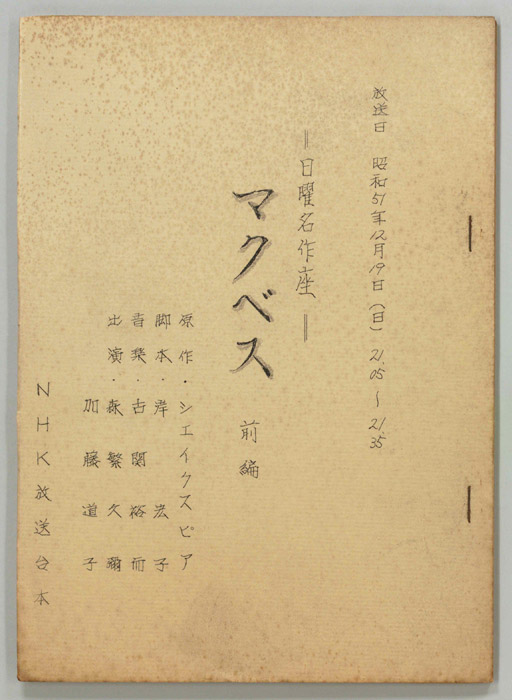 放送日 昭和51年12月19日(日) 21.05〜21.35
＝日曜名作座＝
マクベス 前編
原作・シエイクスピア
脚本・岸 宏子
音楽・古関裕而
出演・森繁久彌
加藤道子
NHK放送台本